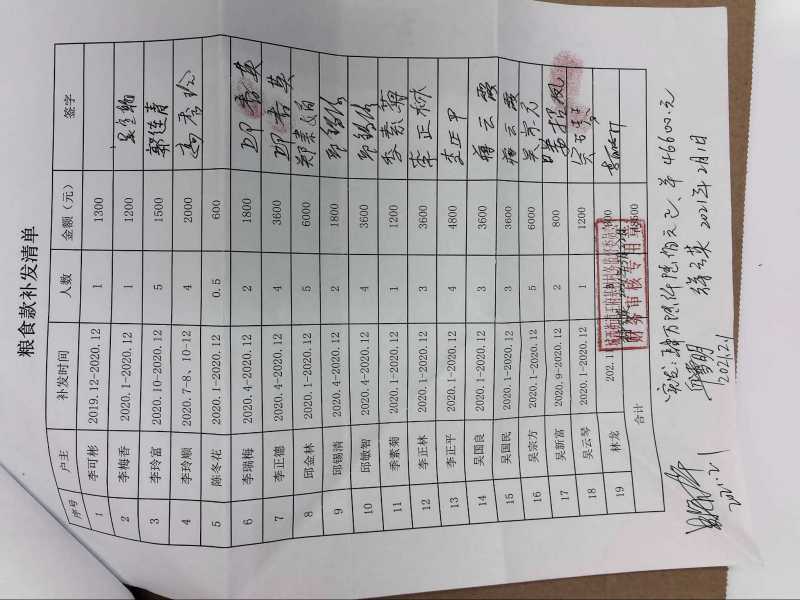 粮食款补发清单
序号 户主 补发时间 人数 金额（元） 签字
1 李可彬 2019.12-2020.12 1 1300
2 李梅香 2020.1-2020.12 1 1200
3 李玲富 2020.10-2020.12 5 1500 郭连青
4 李玲顺 2020.7-8、10-12 4 2000
5 陈冬花 2020.1-2020.12 0.5 600
6 李瑞梅 2020.4-2020.12 2 1800 邱香英
7 李正德 2020.4-2020.12 4 3600 邱香英
8 邱金林 2020.1-2020.12 5 6000
9 邱锡清 2020.4-2020.12 2 1800
10 邱敏智 2020.4-2020.12 4 3600
11 季素菊 2020.1-2020.12 1 1200 季素菊
12 李正林 2020.1-2020.12 3 3600 李正林
13 李正平 2020.1-2020.12 4 4800 李正平
14 吴国良 2020.1-2020.12 3 3600 蒋云霞
15 吴国民 2020.1-2020.12 3 3600 蒋云霞
16 吴宗方 2020.1-2020.12 5 6000 吴宗方
17 吴新富 2020.9-2020.12 2 800
18 吴云琴 2020.1-2020.12 1 1200
19 林龙
合计
财务审核专用章
46600元
2021年2月1日
2021.2.1
2021.2.1